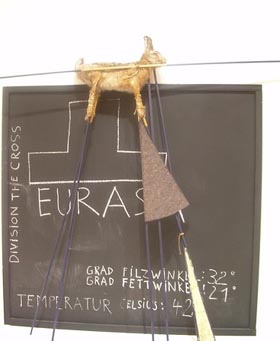 DIVISION THE CROSS
EURAS
GRAD FILZWINKEL: 32°
GRAD FETTWINKEL: 21°
TEMPERATUR CELSIUS: 42